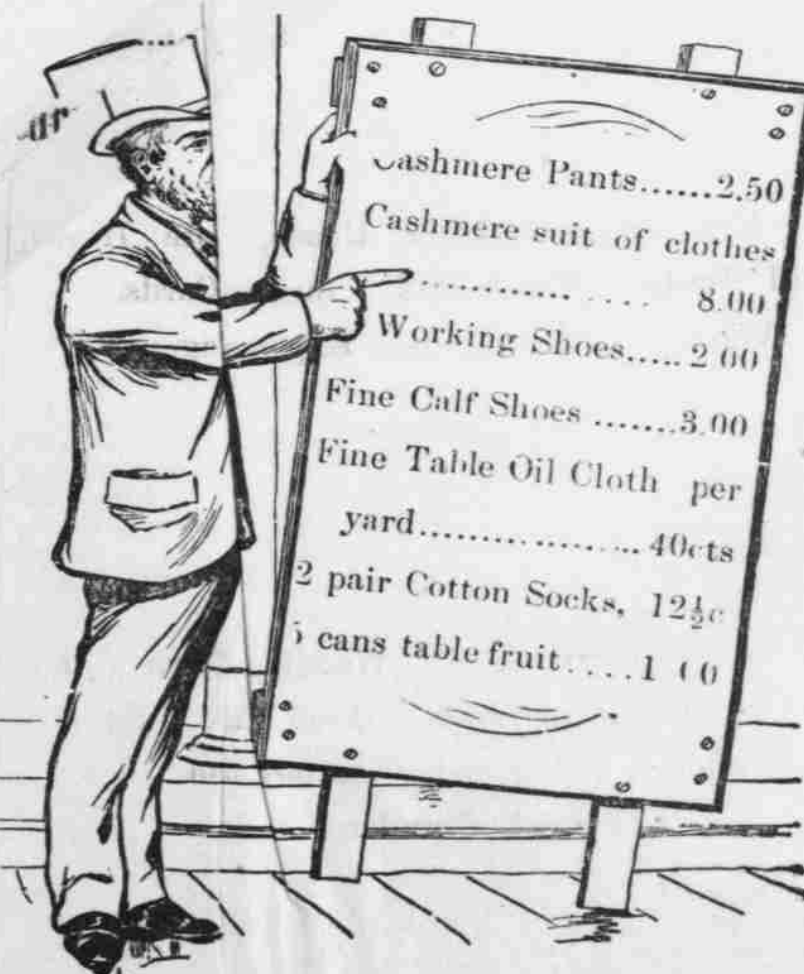 Cashmere Pants......2.50
Cashmere suit of clothes
................ 8.00
Working Shoes..... 2 00
Fine Calf Shoes .......3.00
Fine Table Oil Cloth per
yard.................. 40cts
2 pair Cotton Socks, 12½c
5 cans table fruit.....1 00